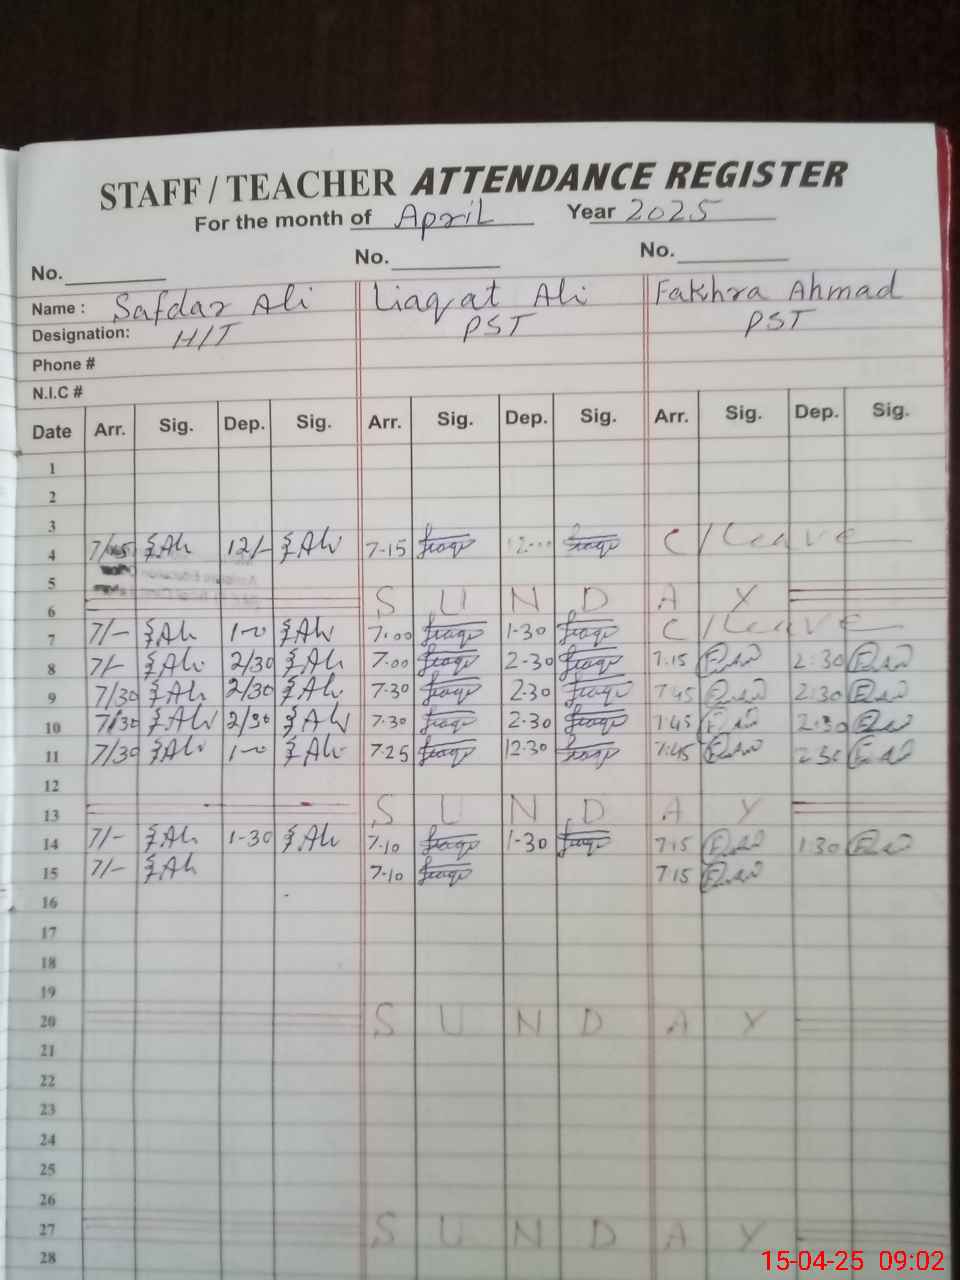 STAFF / TEACHER ATTENDANCE REGISTER
For the month of April Year 2025
No. No. No.
Name : Safdar Ali Liaqat Ali Fakhra Ahmad
Designation: H/T PST PST
Phone #
N.I.C #
Date Arr. Sig. Dep. Sig. Arr. Sig. Dep. Sig. Arr. Sig. Dep. Sig.
1
2
3
4 Ali 12/- Ali 7-15 C/Leave
5
6 SUNDAY
7 7/- Ali 1-0 Ali 7.00 1-30 C/Leave
8 7/- Ali 2/30 Ali 7.00 2-30 7.15 2:30
9 7/30 Ali 2/30 Ali 7.30 2.30 7.45 2:30
10 7/30 Ali 2/30 Ali 7.30 2.30 7.45 2:30
11 7/30 Ali 1-0 Ali 7.25 12.30 7:45 2.30
12
13 SUNDAY
14 7/- Ali 1-30 Ali 7.10 1-30 7.15 1.30
15 7/- Ali 7.10 7.15
16
17
18
19
20 SUNDAY
21
22
23
24
25
26
27 SUNDAY
28
15-04-25 09:02